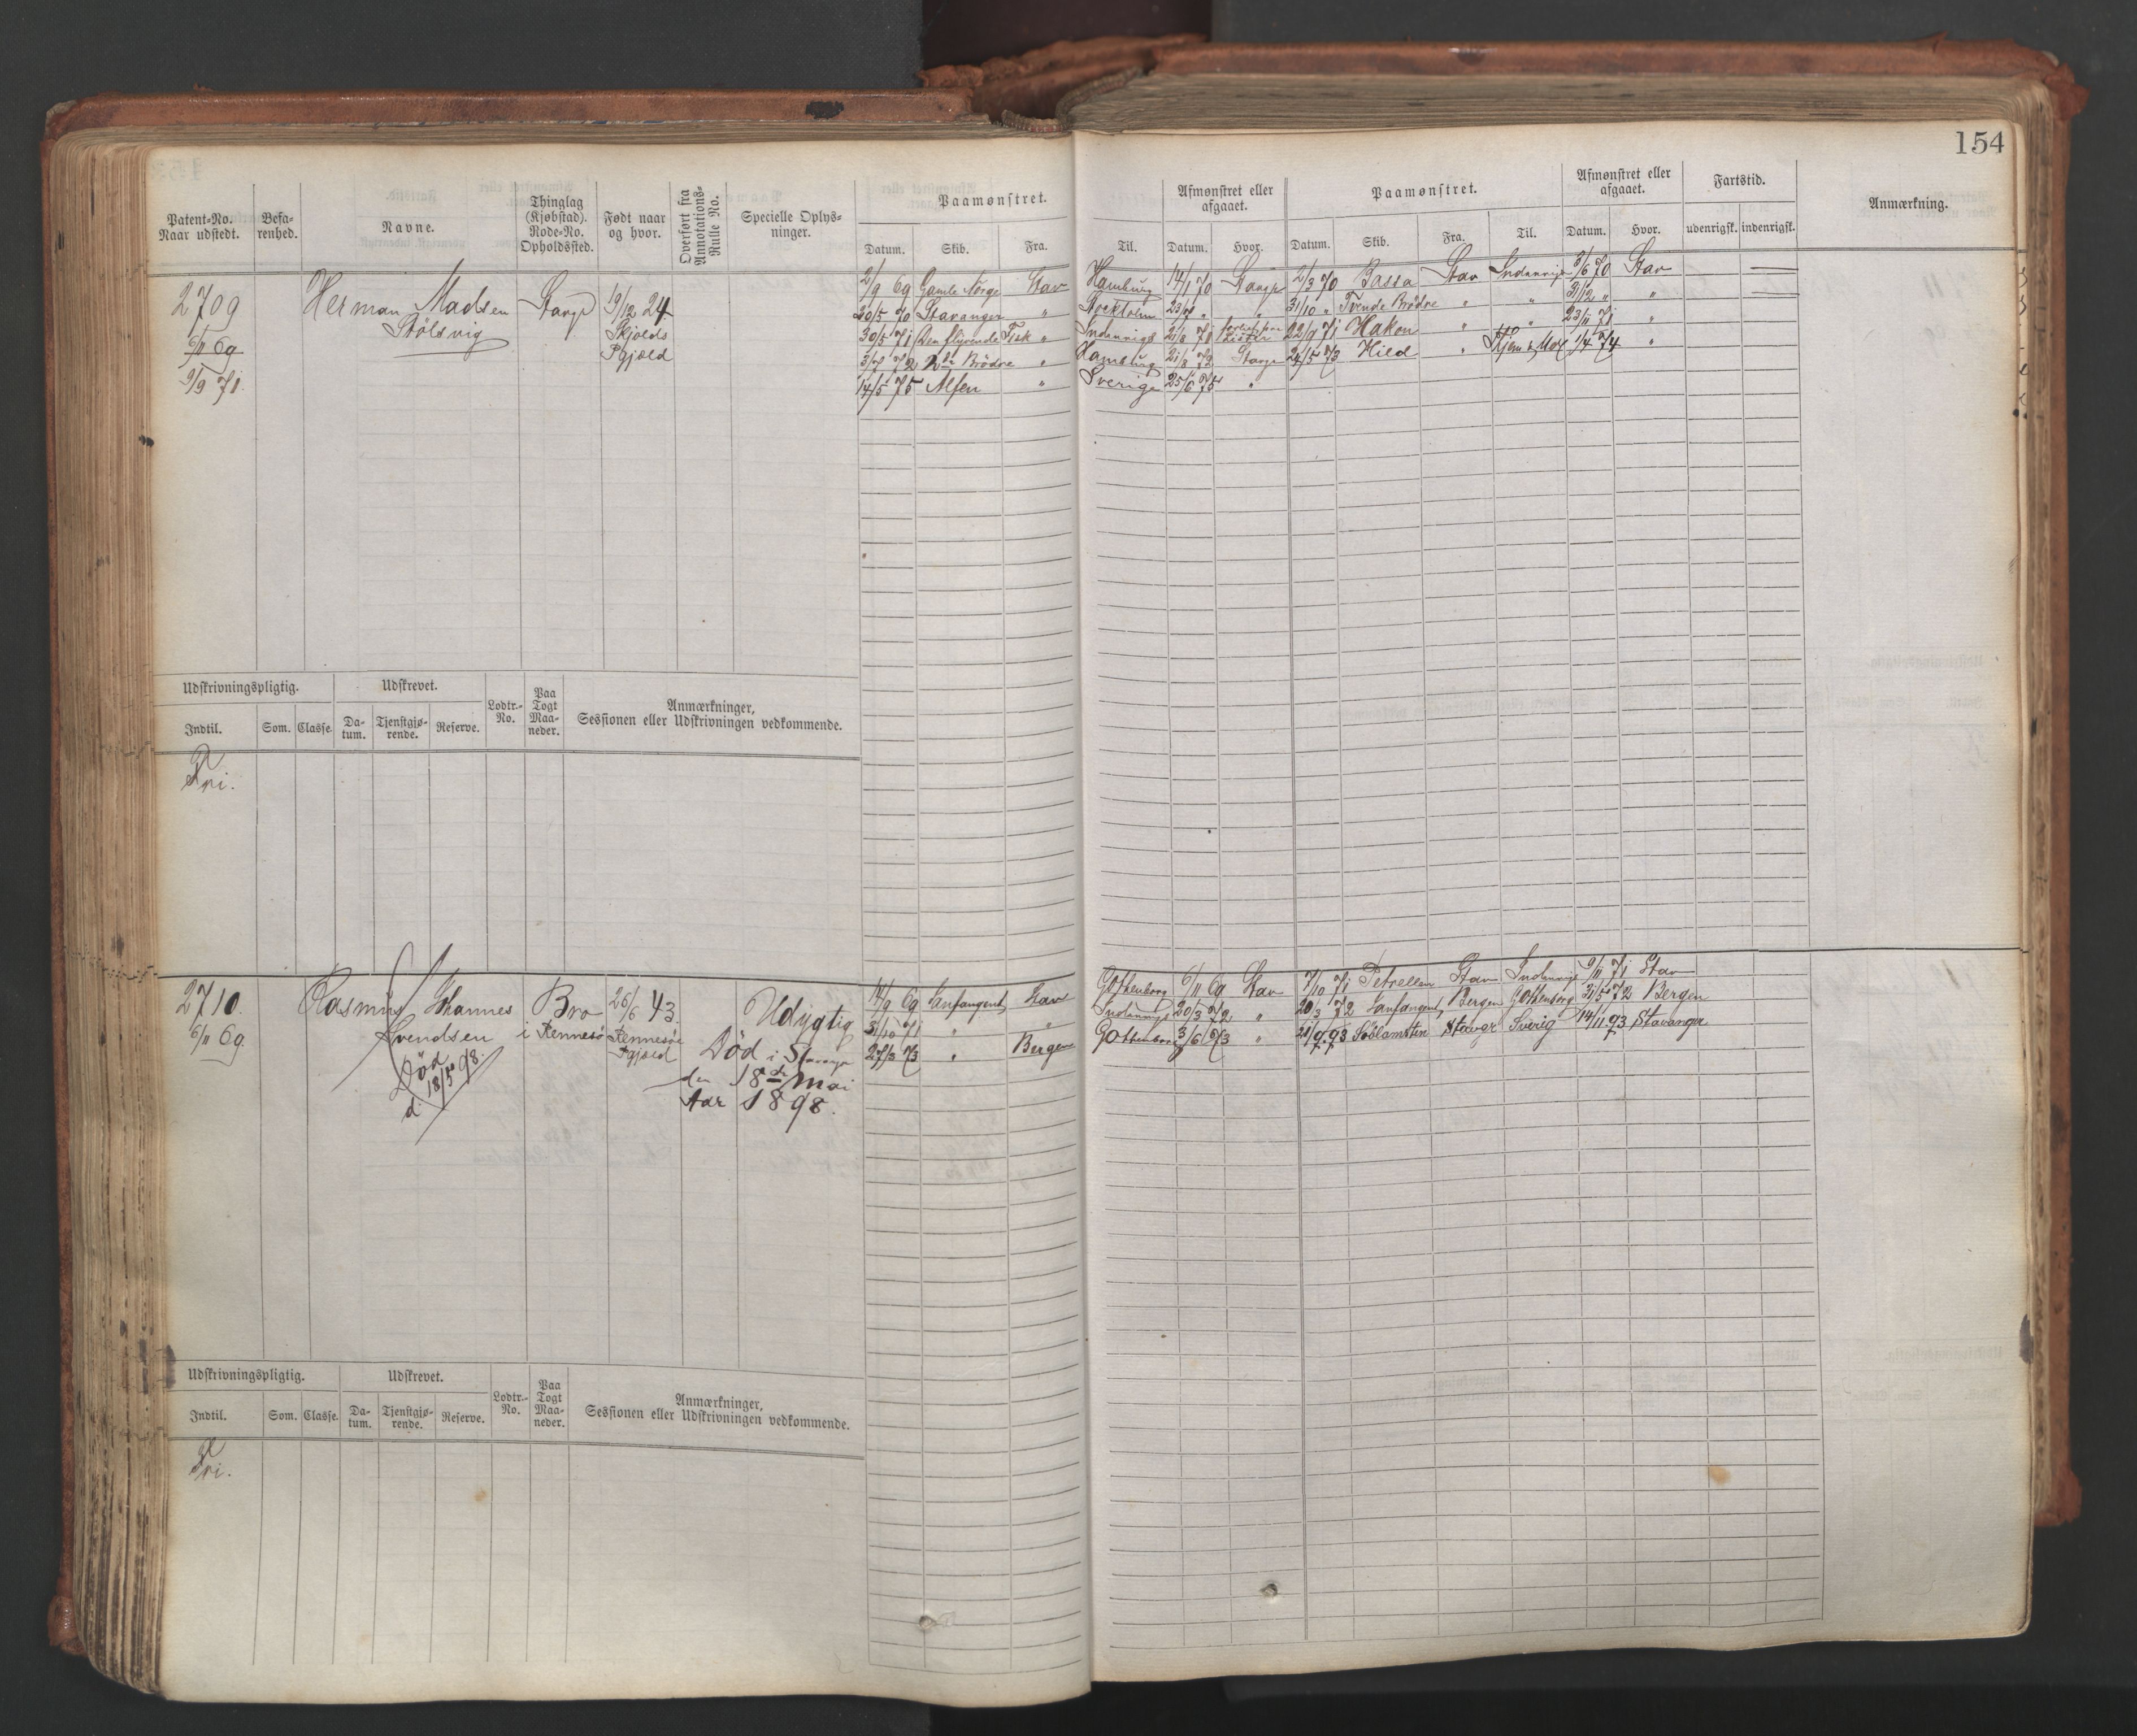 154
Patent-No. Naar udstedt.
Befarenhed.
Navne.
Thinglag (Kjøbstad). Rode-No. Opholdssted.
Født naar og hvor.
Overført fra Annotations-Rulle No.
Specielle Oplysninger.
Paamønstret.
Datum. Skib. Fra. Til.
Afmønstret eller afgaaet.
Datum. Hvor.
Paamønstret.
Datum. Skib. Fra. Til.
Afmønstret eller afgaaet.
Datum. Hvor.
Fartstid.
udenrigsk. indenrigsk.
Anmærkning.
2709 Herman Madsen 19/12 24
Stölsvig Skjolds
6/11 69 Pgjæld
9/9 71
2/9 69 Gamle Norge Stav Hamburg 14/1 70 2/3 70 Bassa Stav 3/6 70 Stav
20/5 70 Stavanger " Stockholm 23/7 " " 31/10 " Tvende Brödre " " 31/12 " "
30/5 71 Den flyvende Fisk " Indenrigs 21/8 71 22/9 71 Hakon " " 23/11 71 "
3/7 72 Brödre " Hamburg 21/8 72 24/5 73 Hild " 1/4 74 "
14/5 75 Alfen " Sverige 25/6 75 "
Udskrivningspligtig. Udskrevet. Lodtr.-No. Paa Togt Maaneder. Anmærkninger, Sessionen eller Udskrivningen vedkommende.
Indtil. Som. Classe. Datum. Tjenstgjørende. Reserve.
Fri.
2710. Rasmus Johannes Bro 26/6 43. Udygtig
6/11 69. Svendsen i Rennesö Rennesö
Pgjæld
Död
d. 18/5 98.
Död i
den 18de Mai
Aar 1898.
14/9 69 Sanfangent Stav Gothenborg 6/11 69 Stav 7/10 71 Petrellen Stav 9/11 71 Stav
3/10 71 " " 20/3 72 " 20/3 72 Sanfangent Bergen Gothenborg 31/5 72 Bergen
27/3 73 " Bergen Gothenborg 3/6 73 " 21/9.93 Stavgr Sverig 14/11.93 Stavanger
Udskrivningspligtig. Udskrevet. Lodtr.-No. Paa Togt Maaneder. Anmærkninger, Sessionen eller Udskrivningen vedkommende.
Indtil. Som. Classe. Datum. Tjenstgjørende. Reserve.
Fri.